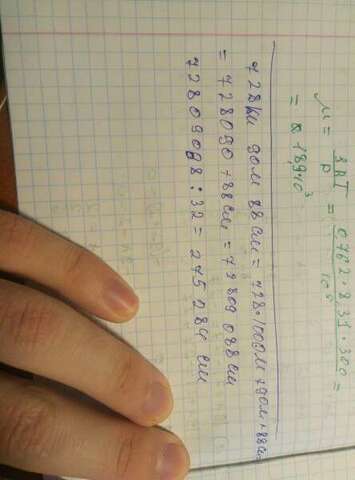 μ = gRT / P = 0,762 · 8,31 · 300 / 10⁵ =
= 189·10³
728км 90м 88см = 728·1000м + 90м + 88см
= 728090 + 88см = 72809088см
72809088 : 32 = 275284 см